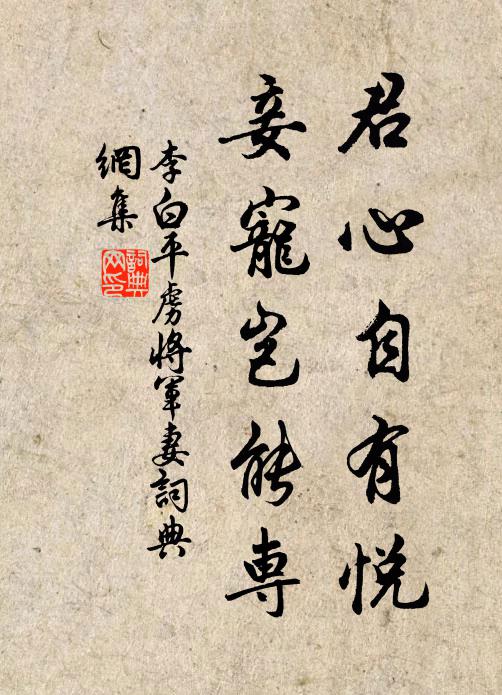 君心自有悦
妾寵岂能専
李白平虜將軍妻詞典
網集
詞典网印